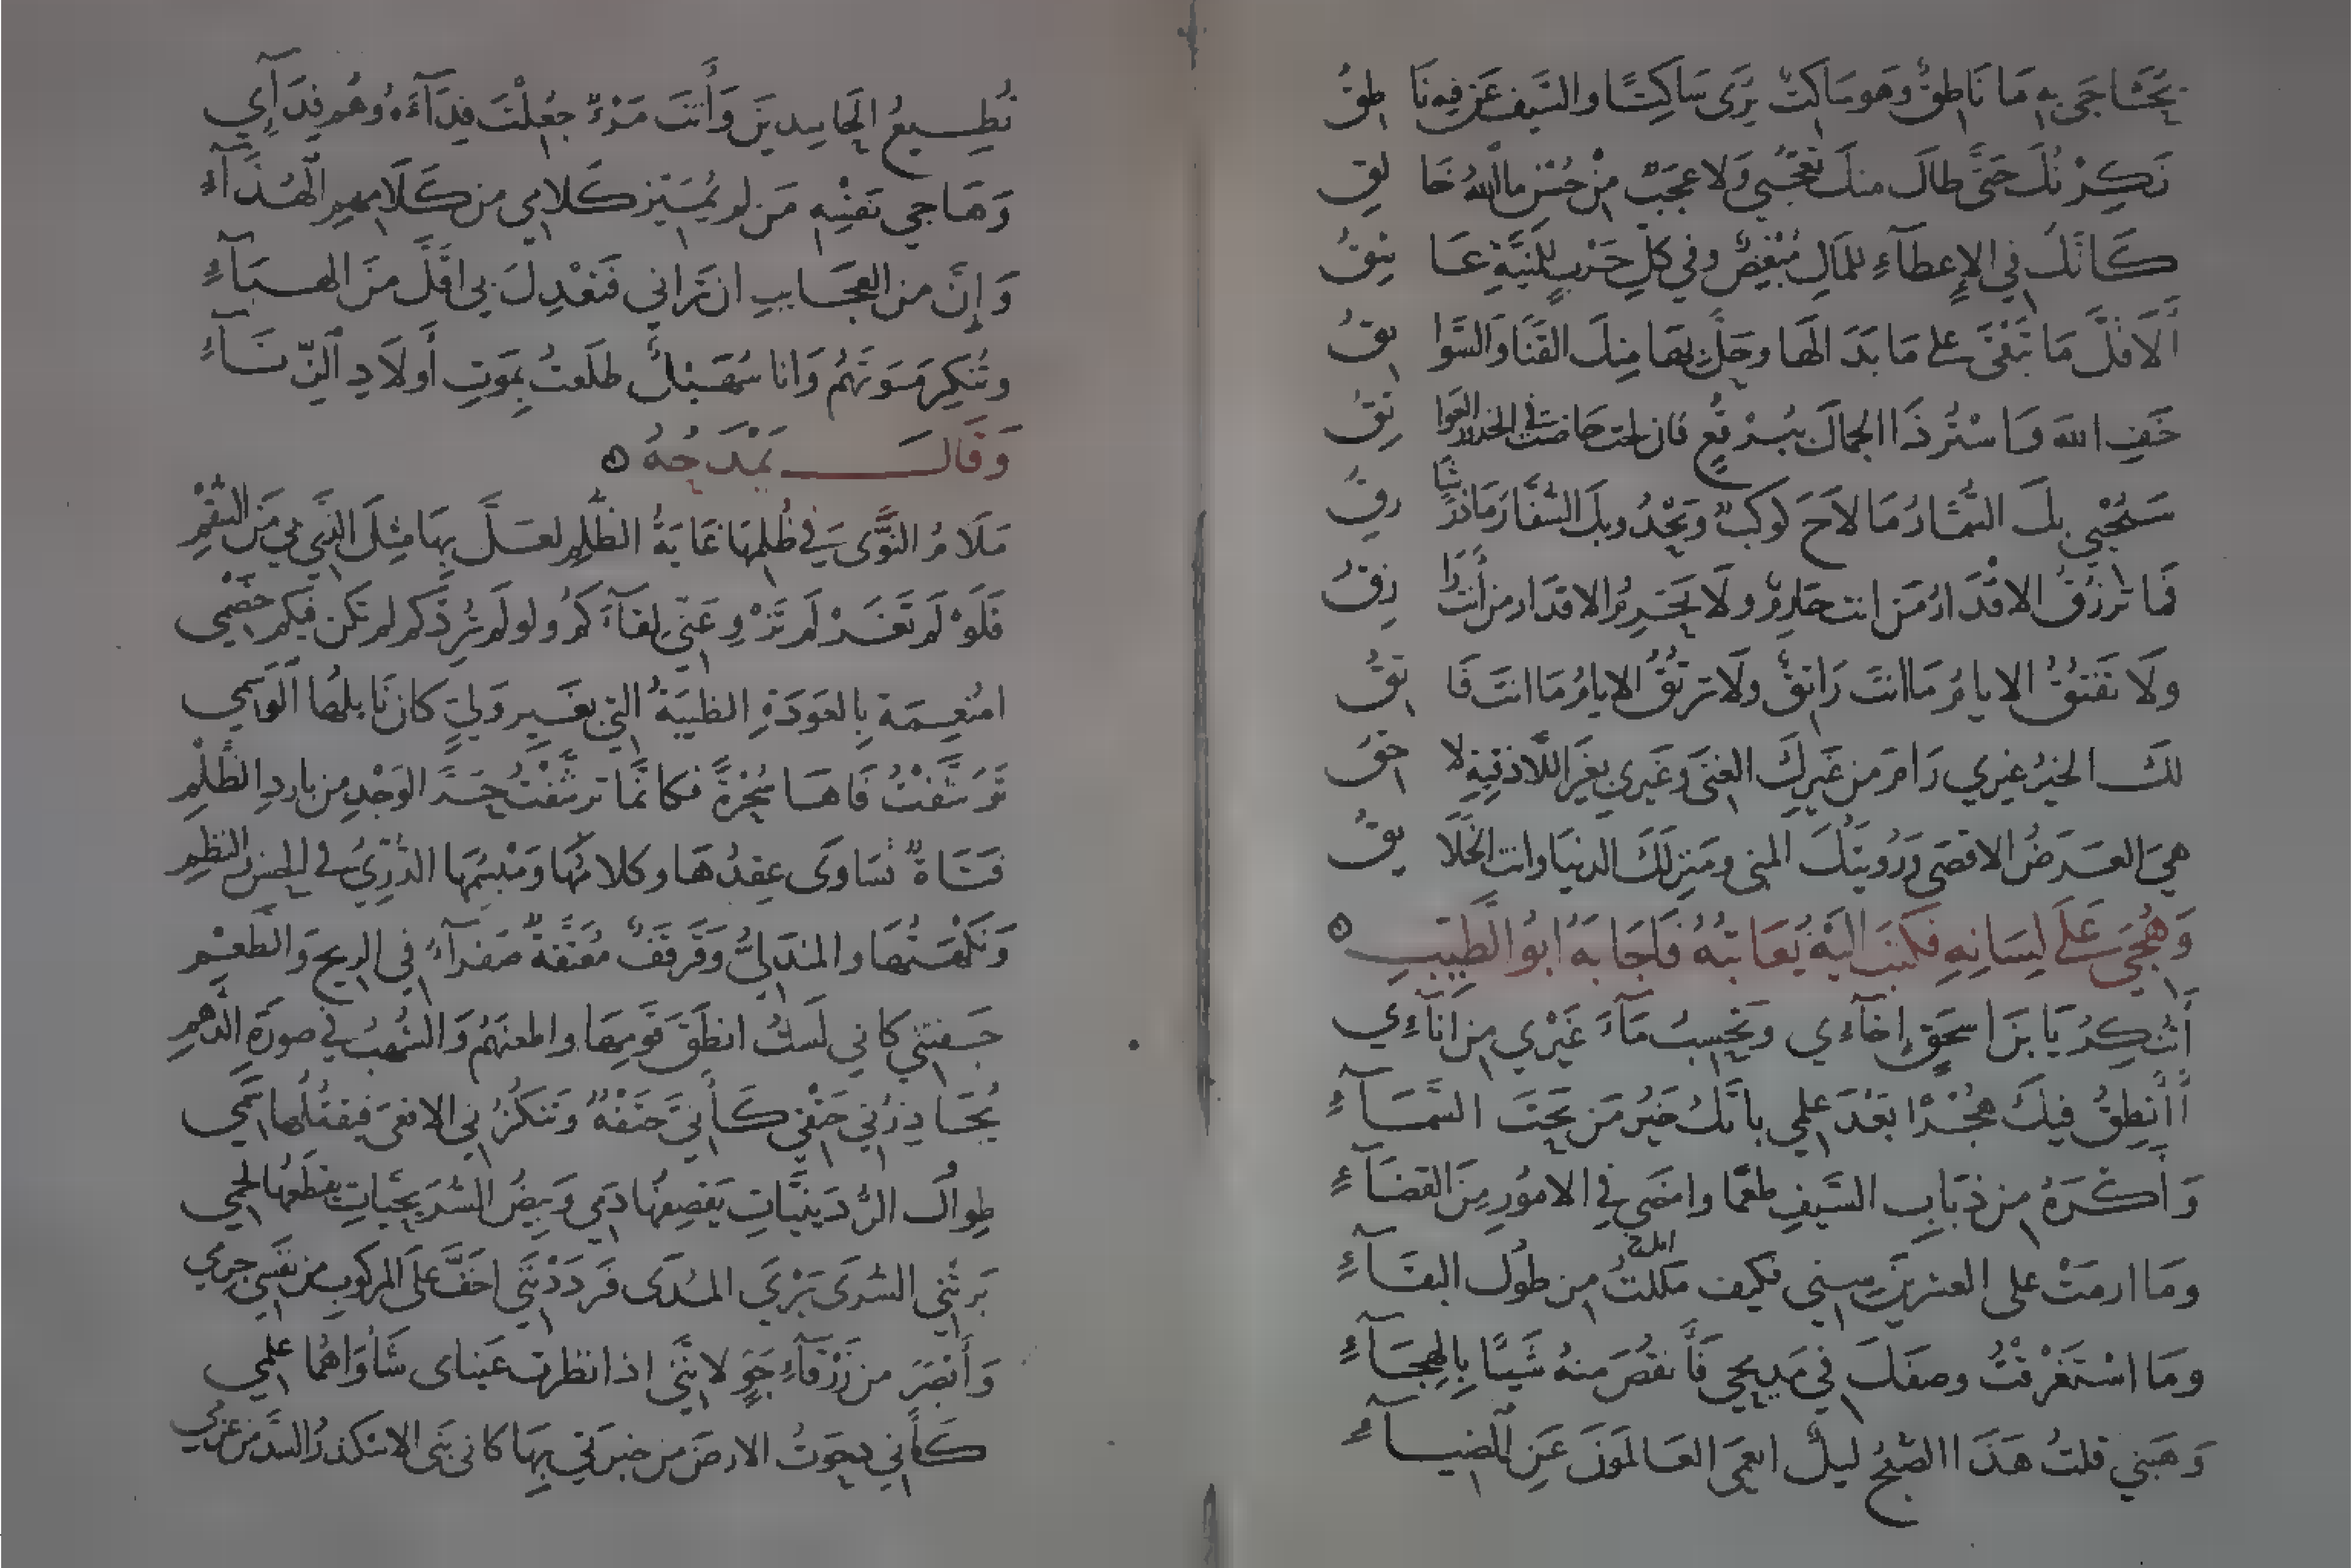 يُحَاجَى بِهِ مَا نَاطِقٌ وَهُوَ سَاكِتٌ يُرَى سَاكِتًا وَالسَّيفُ عَن فِيهِ نَاطِقُ
نَكِرْتُكَ حَتَّى طَالَ مِنكَ تَعَجُّبِي وَلَا عَجَبٌ مِنْ حُسْنِ مَا اللهُ خَالِقُ
كَأَنَّكَ فِي الإِعطَآءِ لِلمَالِ مُبْغِضٌ وَفِي كُلِ حَرْبٍ لِلمَنِيَّةِ عَاشِقُ
أَلَا قَلَّ مَا تَبْقَى عَلى مَا بَدَا لَهَا وَحَلَّ بِهَا مِنكَ القَنَا وَالسَّوَابِقُ
خَفِ اللهَ وَاسْتُرْ ذَا الجمالَ بِبُرْقُعٍ فَان لحت حَاضت في الخدورِ العَواتِقُ
سَيُحْيِي بِكَ السُّمَّارُ مَا لَاحَ كَوكَبٌ وَيَحْدُو بِكَ السُّفَّارُ مَا ذَرَّ شَارِقُ
فَمَا تَرْزُقُ الاقْدَارُ مَن انت حَارِمٌ وَلَا تَحْرِمُ الاقدَار من أنتَ رَازِقُ
وَلَا تَفْتُقُ الايامُ مَا انتَ رَاتِقٌ وَلَا تَرتُقُ الايامُ مَا انتَ فَاتِقُ
لَكَ الخَيرُ غيرِي رَامَ مِن غَيرِكَ الغِنَى وَغَيرِي بِغَيرِ اللَّاذِقِيةِ لَاحِقُ
هِيَ الغَرَضُ الاقصَى وَرُويَتُكَ المنى وَمَنزِلُكَ الدنيَا وانت الخَلَايِقُ
وَهُجِيَ عَلَى لِسَانِهِ فَكَتَبَ اليَهْ يُعَاتِبُهُ فَاجَابَهُ ابُو الطَّيِّبِ
أَتُنكِرُ يَا بنَ اسحَقٍ إِخَآءِي وَتَحسِبُ مَآءَ غَيْرِي مِن إِنَآءِي
أَأَنطِقُ فِيكَ هُجْرًا بَعْدَ عِلمِي بِأَنَّكَ خَيرُ مَن تَحْتَ السَّمَآءِ
وَأَكْرَهُ مِن ذُبَابِ السَّيفِ طَعمًا وامضَى فِي الامُورِ مِنَ القضَآءِ
وَمَا ارمَتْ على العشرينَ سِنِي فكيف مَلِلتُ مِن طُولِ البقَآءِ
وَمَا اسْتَغْرَقْتُ وصفَكَ فِي مَدِيحِي فَأَنقُصَ مِنهُ شَيئًا بِالهِجَآءِ
وَهَبنِي قلتُ هَذَا الصُّبْحُ لَيلٌ ايَعمَى العَالَمُونَ عَنِ الضِيآءِ
تُطِيعُ الحَاسِدِينَ وَأَنتَ مَرْءٌ جُعِلْتُ فِدَآءَهُ وَهُم فِدَآءِي
وَهَاجِي نَفْسِهِ مَن لَم يُمَيّز كَلَامِي مِن كَلَامِهِمِ الهُذَآءِ
وَإِنَّ مِن العَجَايبِ ان تَرَانِي فَتَعْدِلَ بِي اقَلَّ مِنَ الهَبَآءِ
وَتُنكِرَ مَوتَهُمْ وَانَا سُهَيْلٌ طَلَعتُ بِمَوتِ أَولَادِ الزِّنَآءِ
وَقَالَ يَمْدَحُهُ
مَلَامُ النَّوَى فِي ظُلمِهَا غَايَةُ الظُّلمِ لَعَلَّ بِهَا مِثلَ الَّذِي بِي مِنَ السُّقْمِ
فَلَوْ لَم تَغَرْ لَم تَزْوِ عَنِّي لِقَآءَكُمْ وَلَو لَم تُرِدْكُم لم تَكُن فِيكُمُ خَصْمِي
امُنعِمَة بِالعَودَةِ الظَبيَةُ التِي بِغَيرِ وَلِيٍّ كَانَ نَايلُهَا الوَسْمِي
تَرَشَّفْتُ فَاهَا سُحْرَةً فكَأنَّمَا تَرشَّفْتُ حَرَّ الوَجْدِ مِن بَارِدِ الظَّلْمِ
فَتَاةٌ تَسَاوَى عِقدُهَا وَكَلَامُهَا وَمَبْسِمُهَا الدُّرِّيُّ في الحسن والنظمِ
وَنَكْهَتُهَا وَالمَندَلِيُّ وَقَرْقَفٌ مُعَتَّقَةٌ صَفرَآءُ فِي الرِيحِ وَالطَّعْمِ
جَفَتنِي كَأنِي لَستُ انطَقَ قَومِهَا واطعَنَهُمْ وَالشُهبُ في صورَةِ الدُّهمِ
يُحَاذِرُنِي حَتْفِي كَأَنِّيَ حَتْفُهُ وَتَنكُزُنِي الافعَى فَيَقتُلُهَا سُمِّي
طِوالُ الرُّدَينيَّاتِ يَقصِفُهَا دَمِي وَبِيضُ السُّرَيجِيَّاتِ يَقطَعُهَا لَحْمِي
بَرَتْنِي السُّرَى بَرْيَ المُدَى فَرَدَدْنَنِي اخَفَّ عَلَى المَركوبِ مِن نَفَسِي جِرمِي
وَأَبْصَرَ مِن زَرْقَآءِ جَوٍّ لِانَّنِي اذا نظرت عَيناىَ شَأوَاهُمَا عِلمِي
كَأَنِّي دَحَوتُ الارضَ مِن خِبرَتِي بِهَا كَأني بَنَى الاسكندرُ السَّد مِن عَزمِي